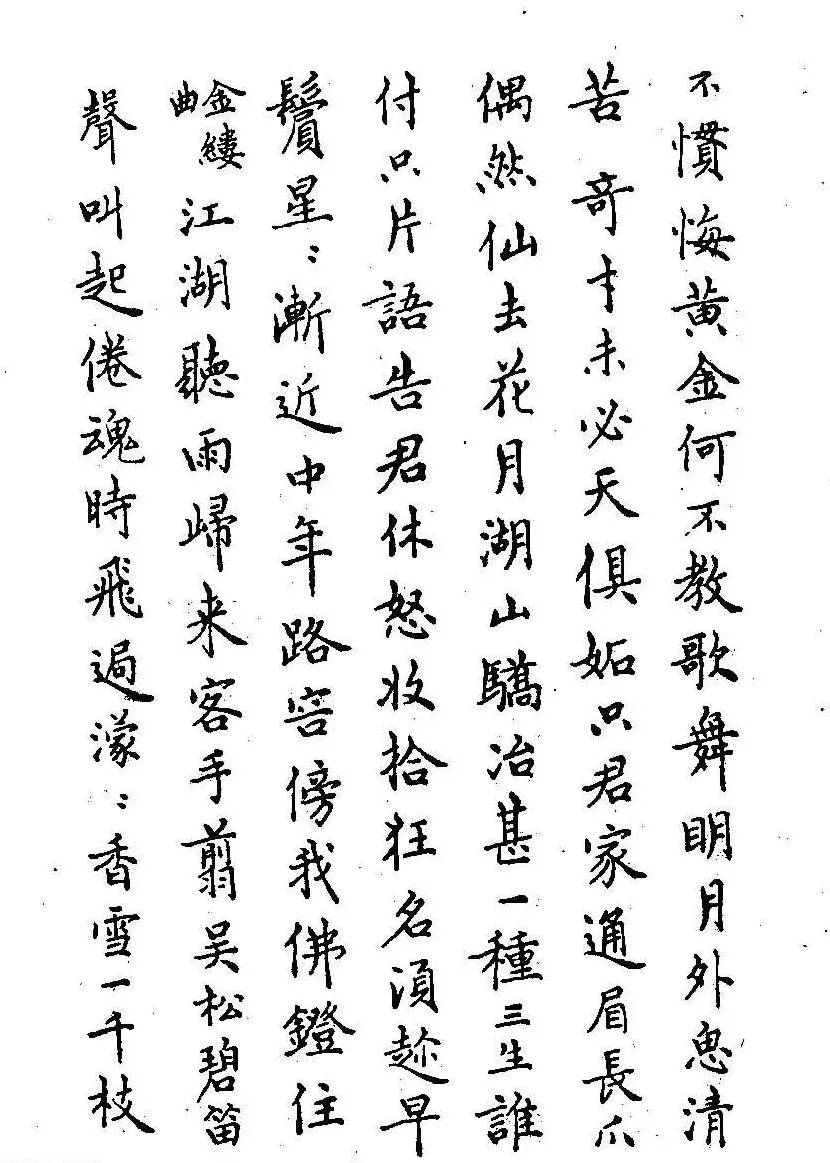 不慣悔黃金何不教歌舞明月外思清
苦 奇才未必天俱妬只君家通眉長爪
偶然仙去花月湖山驕冶甚一種三生誰
付只片語告君休怒收拾狂名須趂早
鬢星:漸近中年路容傍我佛鐙住
金縷曲 江湖聽雨歸来客手翦吳松碧笛
聲叫起倦魂時飛過濛:香雪一千枝